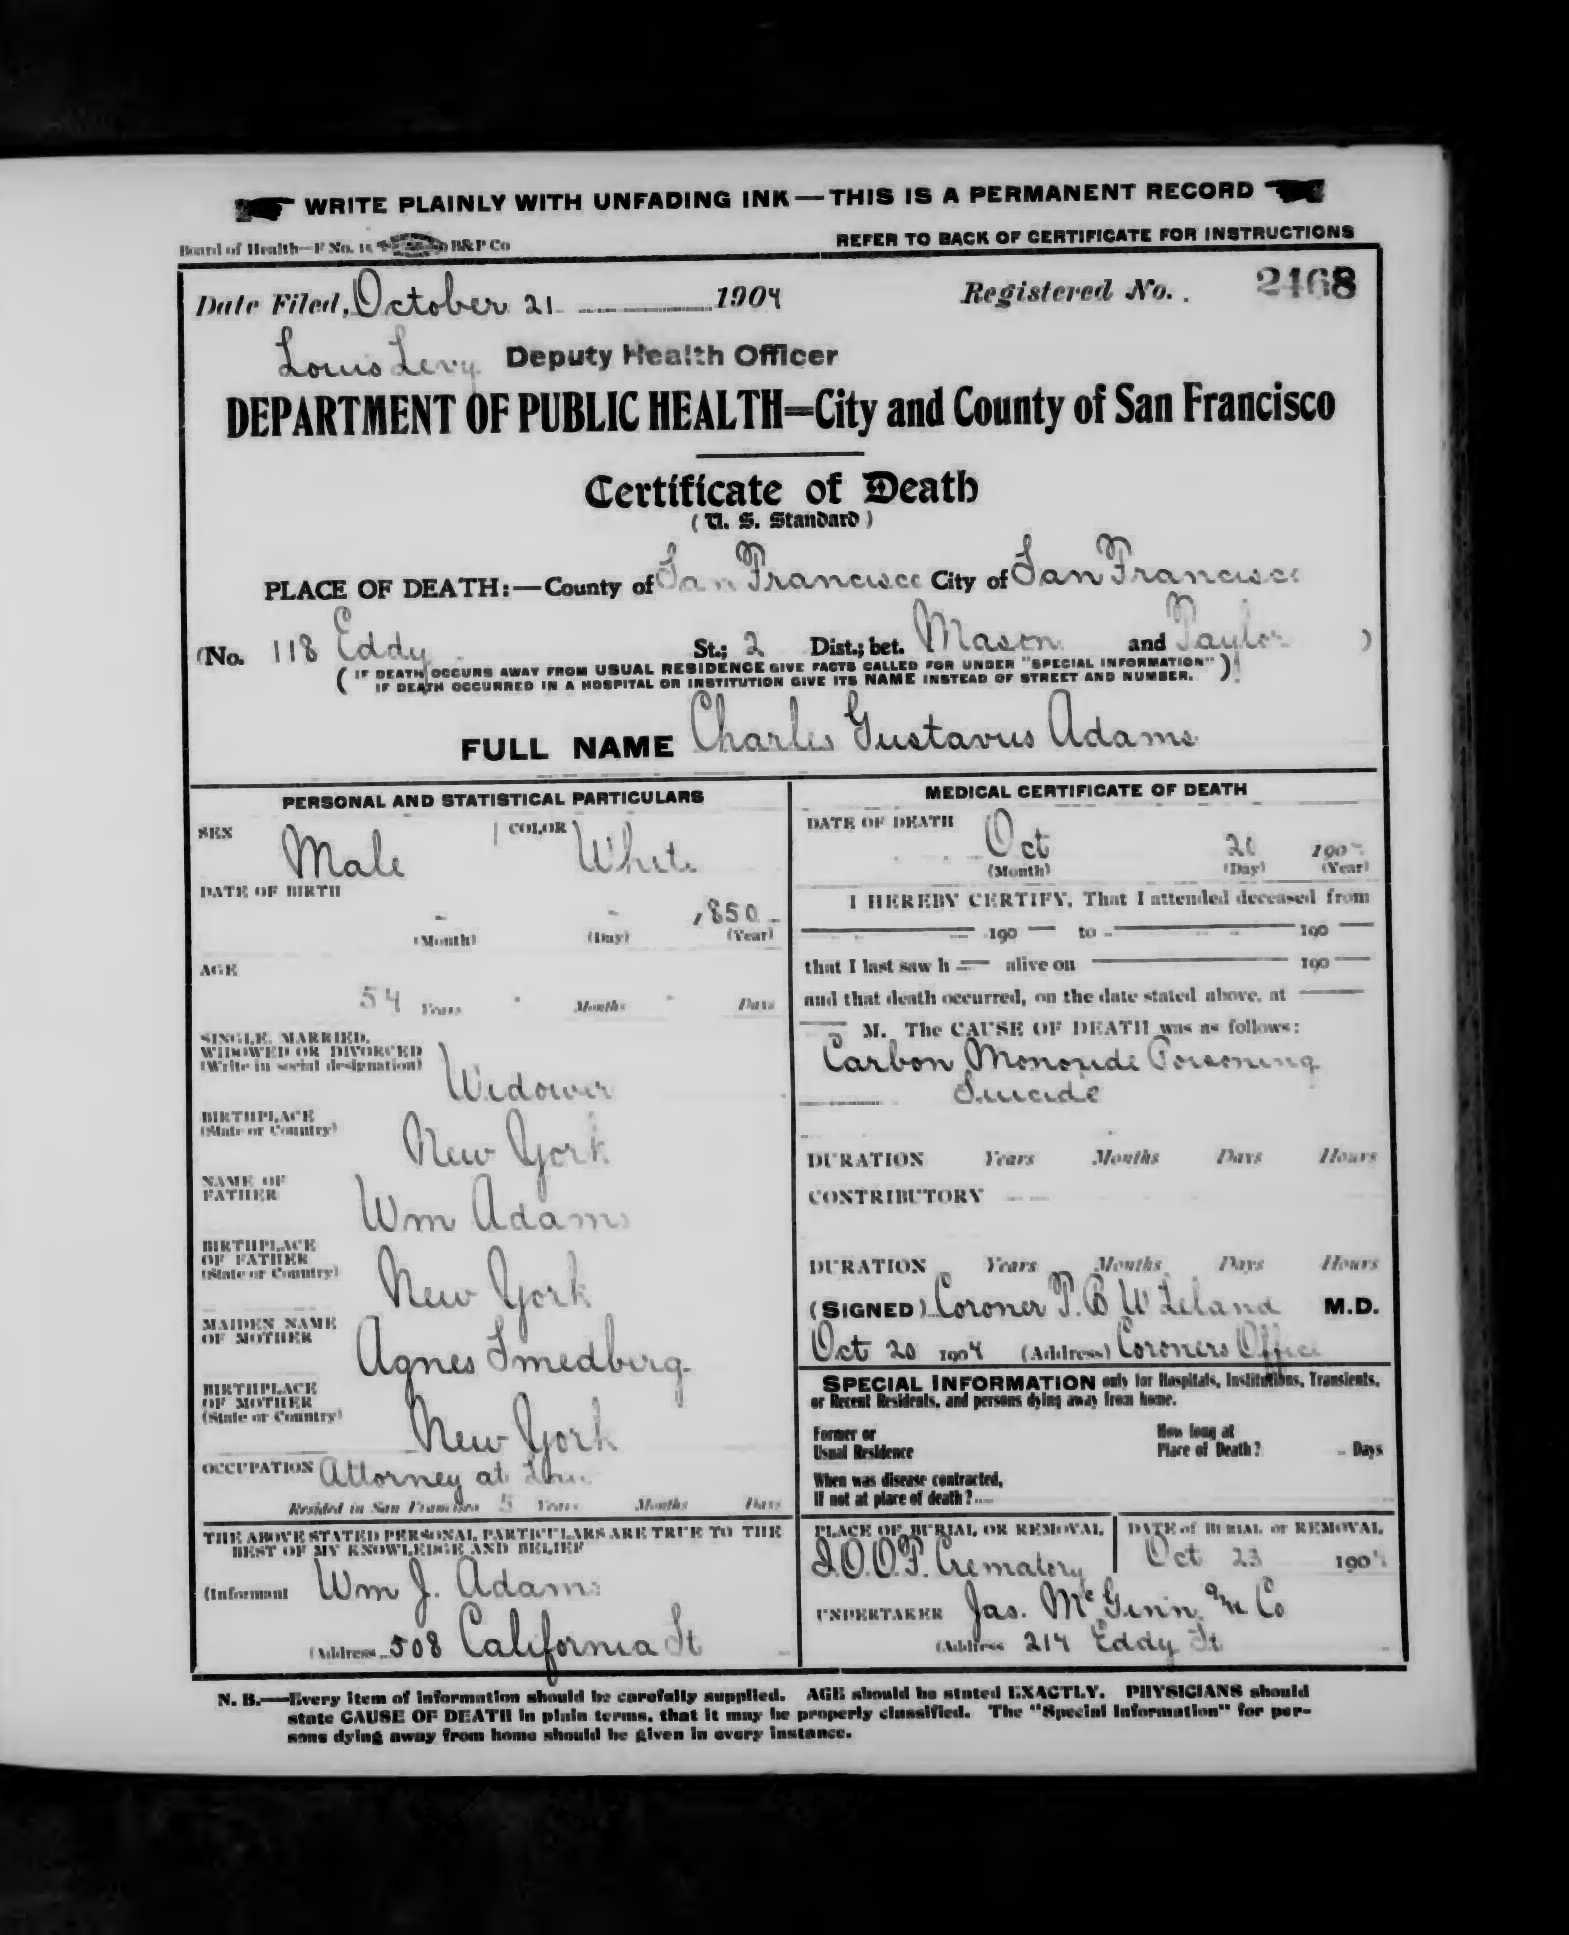 WRITE PLAINLY WITH UNFADING INK—THIS IS A PERMANENT RECORD
Board of Health—F No. 15 B&P Co
REFER TO BACK OF CERTIFICATE FOR INSTRUCTIONS
Date Filed, October 21 1904 Registered No. 2468
Louis Levy Deputy Health Officer
DEPARTMENT OF PUBLIC HEALTH=City and County of San Francisco
Certificate of Death
(U. S. Standard)
PLACE OF DEATH:—County of San Francisco City of San Francisco
(No. 118 Eddy St.; 2 Dist.; bet. Mason and Taylor )
(IF DEATH OCCURS AWAY FROM USUAL RESIDENCE GIVE FACTS CALLED FOR UNDER "SPECIAL INFORMATION"
IF DEATH OCCURRED IN A HOSPITAL OR INSTITUTION GIVE ITS NAME INSTEAD OF STREET AND NUMBER.)
FULL NAME Charles Gustavus Adams
PERSONAL AND STATISTICAL PARTICULARS
SEX Male COLOR White
DATE OF BIRTH
- - 1850
(Month) (Day) (Year)
AGE
54 Years Months Days
SINGLE, MARRIED,
WIDOWED OR DIVORCED
(Write in social designation) Widower
BIRTHPLACE
(State or Country) New York
NAME OF
FATHER Wm Adams
BIRTHPLACE
OF FATHER
(State or Country) New York
MAIDEN NAME
OF MOTHER Agnes Smedberg
BIRTHPLACE
OF MOTHER
(State or Country) New York
OCCUPATION Attorney at Law
Resided in San Francisco 5 Years Months Days
THE ABOVE STATED PERSONAL PARTICULARS ARE TRUE TO THE
BEST OF MY KNOWLEDGE AND BELIEF
(Informant Wm J. Adams
(Address 508 California St
MEDICAL CERTIFICATE OF DEATH
DATE OF DEATH
Oct 20 1904
(Month) (Day) (Year)
I HEREBY CERTIFY, That I attended deceased from
190 to 190
that I last saw h alive on 190
and that death occurred, on the date stated above, at
M. The CAUSE OF DEATH was as follows:
Carbon Monoxide Poisoning
Suicide
DURATION Years Months Days Hours
CONTRIBUTORY
DURATION Years Months Days Hours
(SIGNED) Coroner T. B W Leland M.D.
Oct 20 1904 (Address) Coroners Office
SPECIAL INFORMATION only for Hospitals, Institutions, Transients,
or Recent Residents, and persons dying away from home.
Former or
Usual Residence
How long at
Place of Death? Days
When was disease contracted,
If not at place of death?
PLACE OF BURIAL OR REMOVAL
I.O.O.F. Crematory
DATE of BURIAL or REMOVAL
Oct 23 1904
UNDERTAKER Jas. McGinn & Co
(Address 214 Eddy St
N. B.—Every item of information should be carefully supplied. AGE should be stated EXACTLY. PHYSICIANS should
state CAUSE OF DEATH in plain terms, that it may be properly classified. The "Special Information" for per-
sons dying away from home should be given in every instance.